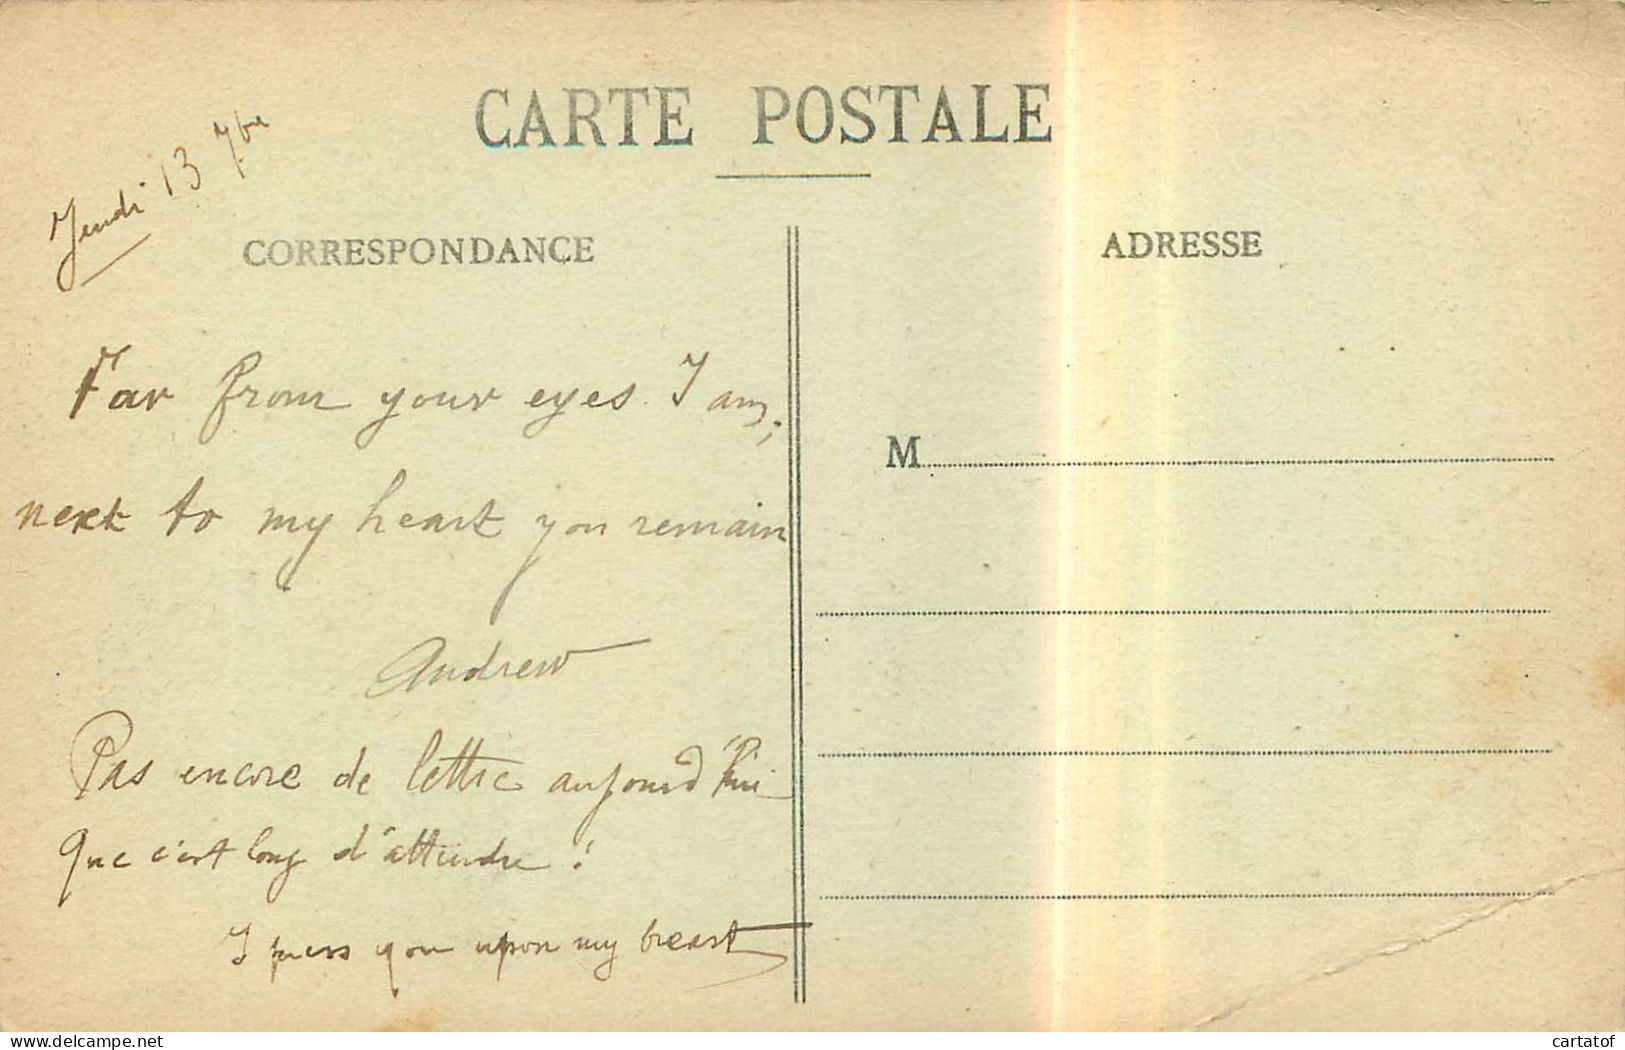 CARTE POSTALE
Jeudi 13 7bre
CORRESPONDANCE
ADRESSE
Far from your eyes I am;
next to my heart you remain
Andrew
Pas encore de lettre aujourd'hui
Que c'est long d'attendre !
I press you upon my breast
M
delcampe.net
cartatof